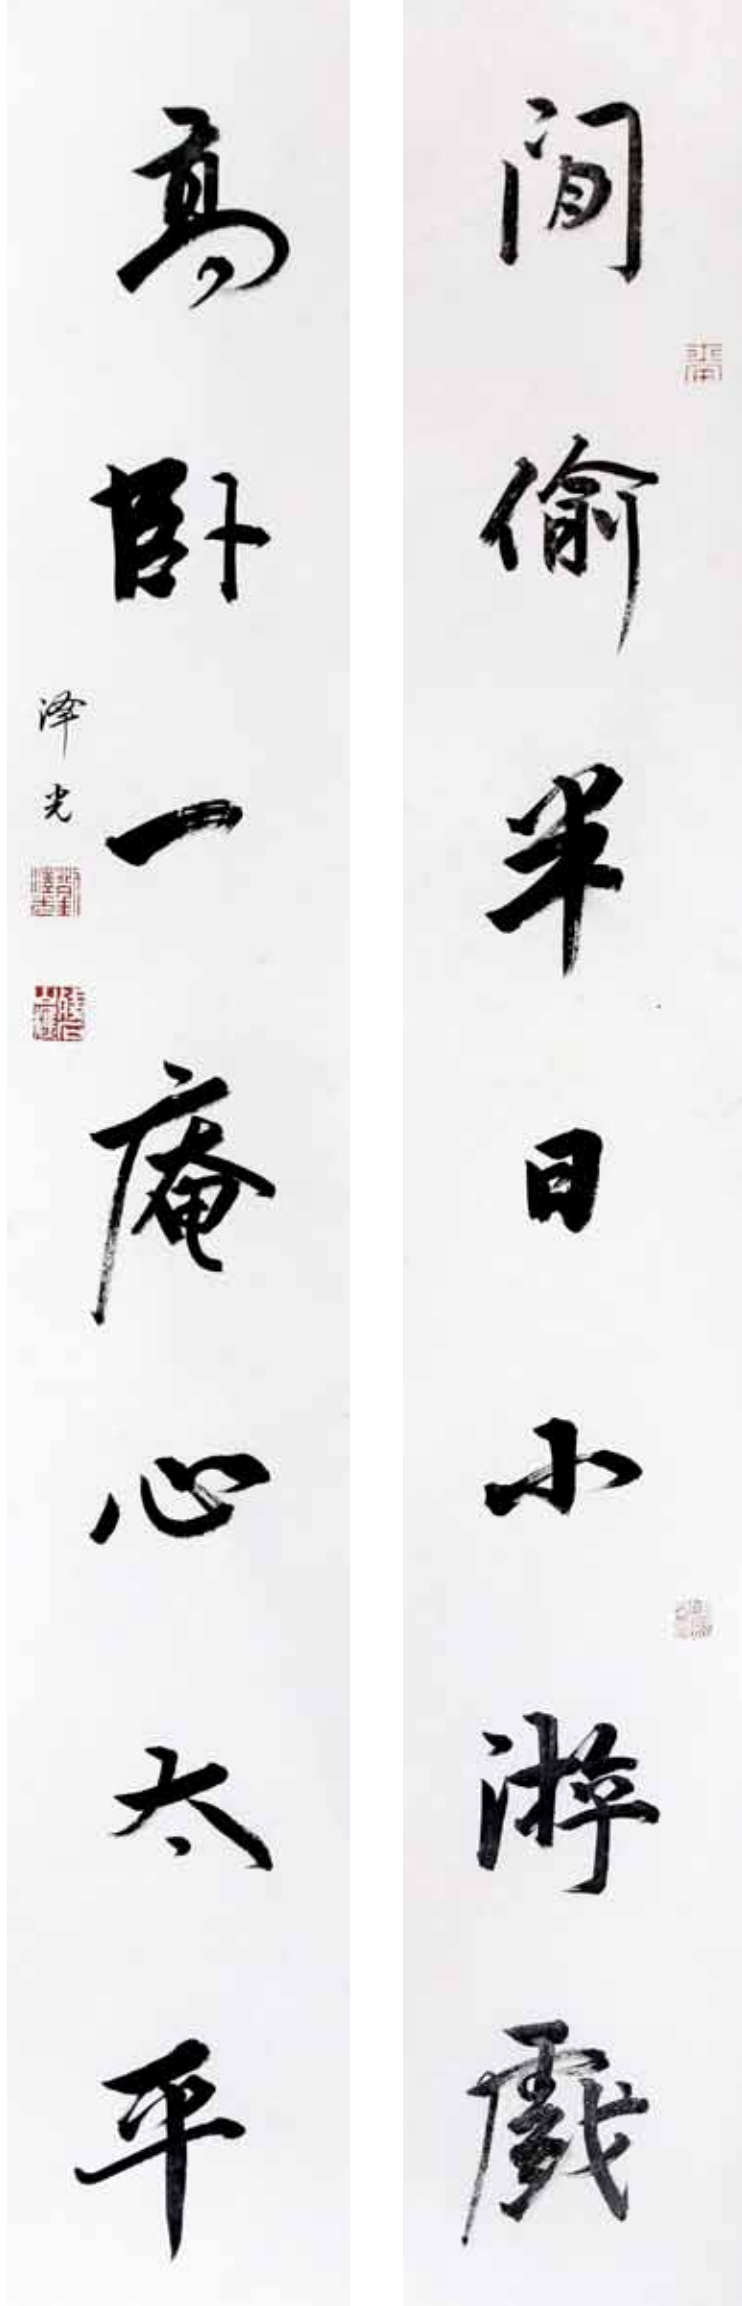 閒偷半日小游戲
高卧一庵心太平
泽光